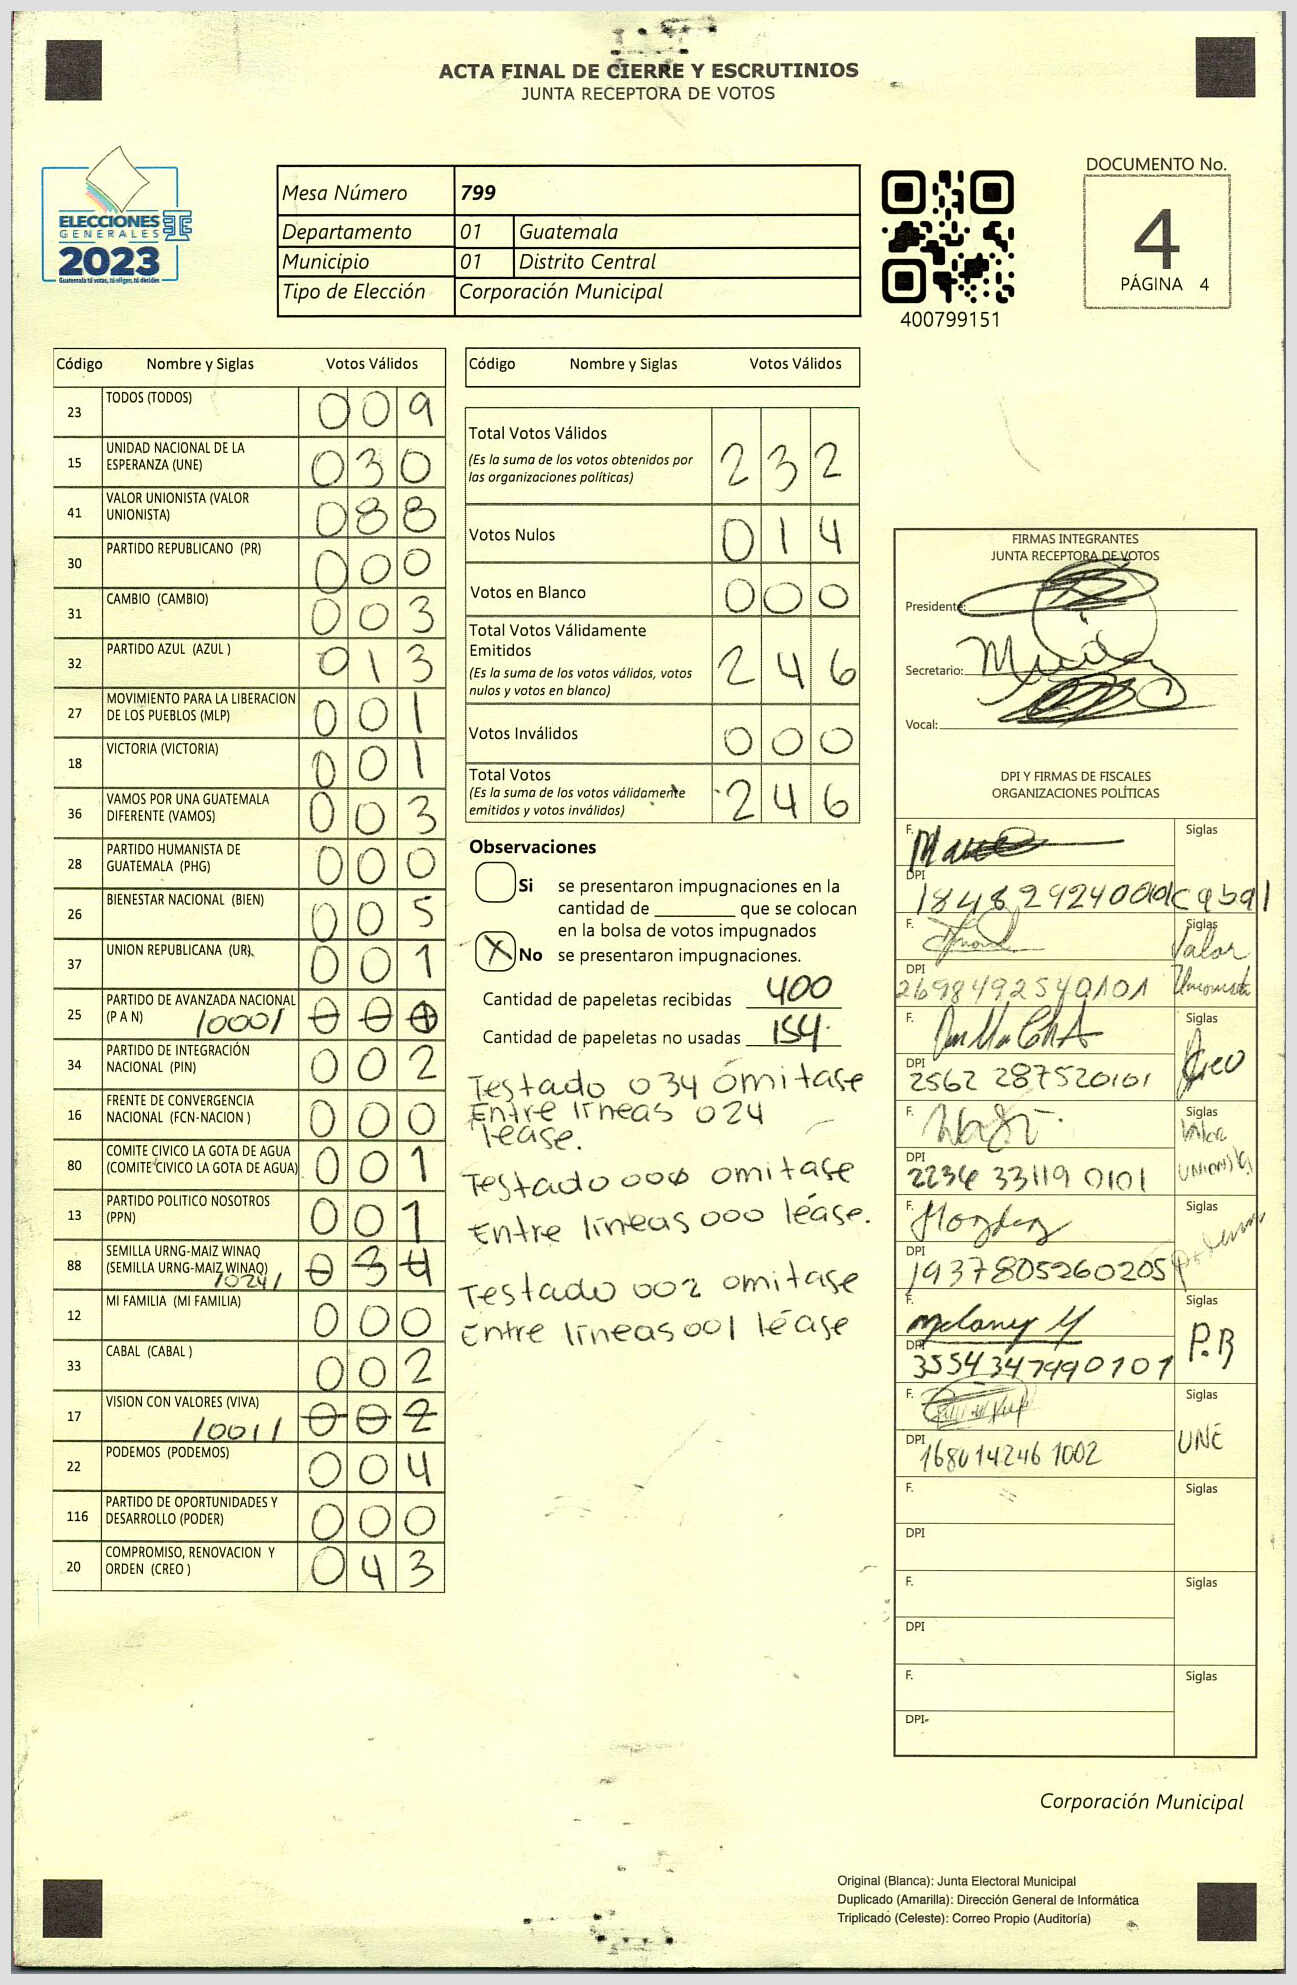 ACTA FINAL DE CIERRE Y ESCRUTINIOS
JUNTA RECEPTORA DE VOTOS
ELECCIONES
GENERALES
2023
Guatemala tú votas, tú eliges, tú decides
TSE
Mesa Número 799
Departamento 01 Guatemala
Municipio 01 Distrito Central
Tipo de Elección Corporación Municipal
400799151
DOCUMENTO No.
4
PÁGINA 4
Código Nombre y Siglas Votos Válidos
23 TODOS (TODOS) 009
15 UNIDAD NACIONAL DE LA ESPERANZA (UNE) 030
41 VALOR UNIONISTA (VALOR UNIONISTA) 088
30 PARTIDO REPUBLICANO (PR) 000
31 CAMBIO (CAMBIO) 003
32 PARTIDO AZUL (AZUL ) 013
27 MOVIMIENTO PARA LA LIBERACION DE LOS PUEBLOS (MLP) 001
18 VICTORIA (VICTORIA) 001
36 VAMOS POR UNA GUATEMALA DIFERENTE (VAMOS) 003
28 PARTIDO HUMANISTA DE GUATEMALA (PHG) 000
26 BIENESTAR NACIONAL (BIEN) 005
37 UNION REPUBLICANA (UR) 001
25 PARTIDO DE AVANZADA NACIONAL (P A N) /000/ 000
34 PARTIDO DE INTEGRACIÓN NACIONAL (PIN) 002
16 FRENTE DE CONVERGENCIA NACIONAL (FCN-NACION ) 000
80 COMITE CIVICO LA GOTA DE AGUA (COMITE CIVICO LA GOTA DE AGUA) 001
13 PARTIDO POLITICO NOSOTROS (PPN) 001
88 SEMILLA URNG-MAIZ WINAQ (SEMILLA URNG-MAIZ WINAQ) /024/ 034
12 MI FAMILIA (MI FAMILIA) 000
33 CABAL (CABAL ) 002
17 VISION CON VALORES (VIVA) /001/ 002
22 PODEMOS (PODEMOS) 004
116 PARTIDO DE OPORTUNIDADES Y DESARROLLO (PODER) 000
20 COMPROMISO, RENOVACION Y ORDEN (CREO ) 043
Código Nombre y Siglas Votos Válidos
Total Votos Válidos 232
(Es la suma de los votos obtenidos por
las organizaciones políticas)
Votos Nulos 014
Votos en Blanco 000
Total Votos Válidamente
Emitidos 246
(Es la suma de los votos válidos, votos
nulos y votos en blanco)
Votos Inválidos 000
Total Votos 246
(Es la suma de los votos válidamente
emitidos y votos inválidos)
Observaciones
Si se presentaron impugnaciones en la
cantidad de ________ que se colocan
en la bolsa de votos impugnados
X No se presentaron impugnaciones.
Cantidad de papeletas recibidas 400
Cantidad de papeletas no usadas 154
Testado 034 ómitase
Entre líneas 024
léase.
Testado 000 omitase
Entre líneas 000 léase.
Testado 002 omitase
Entre líneas 001 léase
FIRMAS INTEGRANTES
JUNTA RECEPTORA DE VOTOS
Presidente:
Secretario:
Vocal:
DPI Y FIRMAS DE FISCALES
ORGANIZACIONES POLÍTICAS
F. Siglas
DPI cabal
F. Siglas
Valor
DPI 2698492540101 Unionista
F. Siglas
Creo
DPI 2562 287520101
F. Siglas
Valor
DPI 2234 33119 0101 Unionista
F. Siglas
DPI 1937805260205
F. Melany M Siglas
P.R
DPI 3554347990101
F. Siglas
UNE
DPI 168014246 1002
F. Siglas
DPI
F. Siglas
DPI
F. Siglas
DPI
Corporación Municipal
Original (Blanca): Junta Electoral Municipal
Duplicado (Amarilla): Dirección General de Informática
Triplicado (Celeste): Correo Propio (Auditoría)